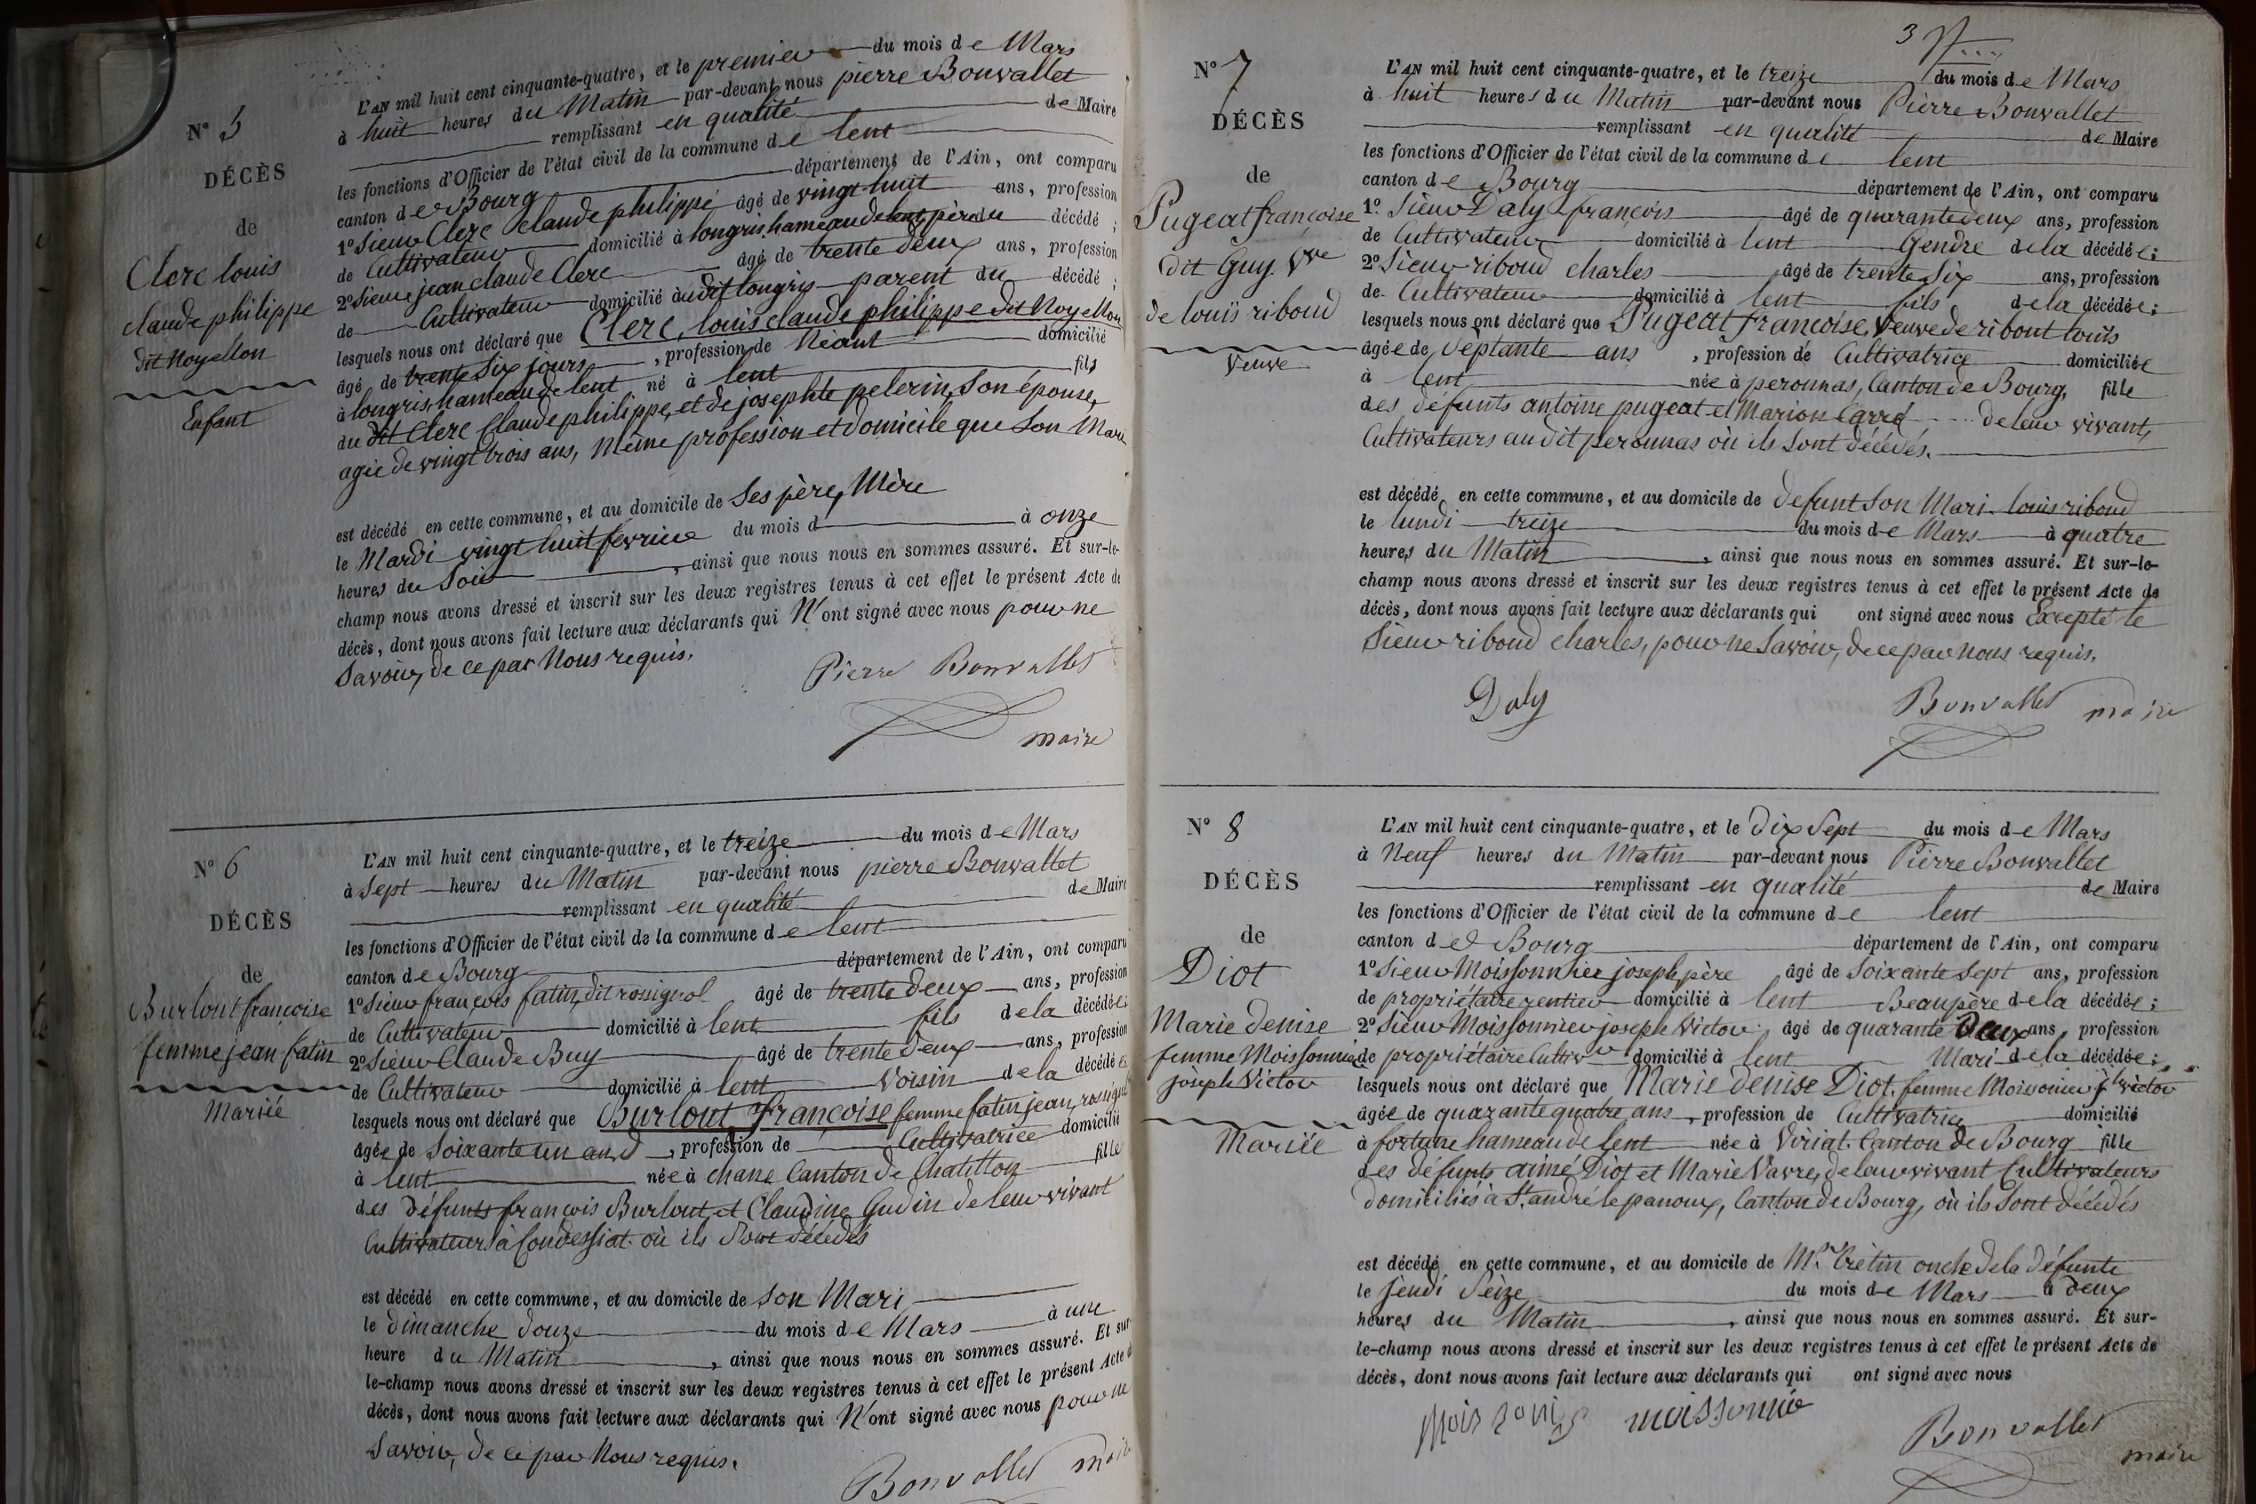 N° 5
DÉCÈS
de
Clerc louis
claude philippe
dit Noyellon
Enfant
L'AN mil huit cent cinquante-quatre, et le premier du mois de Mars
à huit heures du Matin par-devant nous pierre Bonvallet
remplissant en qualité de Maire
les fonctions d'Officier de l'état civil de la commune de lent
canton de Bourg département de l'Ain, ont comparu
1° Sieur Clerc Claude philippe âgé de vingt huit ans, profession
de Cultivateur domicilié à longris, hameau de lent, père du décédé ;
2° Sieur jean claude Clerc âgé de trente deux ans, profession
de Cultivateur domicilié audit longris parent du décédé ;
lesquels nous ont déclaré que Clerc, louis claude philippe dit Noyellon
âgé de trente six jours, profession de Néant domicilié
à longris, hameau de lent né à lent fils
du dit Clerc Claude philippe, et de josephte pelerin, Son épouse,
agée de vingt trois ans, Même profession et domicile que Son Mari
est décédé en cette commune, et au domicile de Ses père, Mère
le Mardi vingt huit février du mois d à onze
heures du Soir, ainsi que nous nous en sommes assuré. Et sur-le-
champ nous avons dressé et inscrit sur les deux registres tenus à cet effet le présent Acte de
décès, dont nous avons fait lecture aux déclarants qui N'ont signé avec nous pour ne
Savoir, de ce par Nous requis.
Pierre Bonvallet
maire
N° 6
DÉCÈS
de
Burlout françoise
femme jean fatin
Mariée
L'AN mil huit cent cinquante-quatre, et le treize du mois de Mars
à Sept heures du Matin par-devant nous pierre Bonvallet
remplissant en qualité de Maire
les fonctions d'Officier de l'état civil de la commune de lent
canton de Bourg département de l'Ain, ont comparu
1° Sieur françois fatin, dit rossignol âgé de trente deux ans, profession
de Cultivateur domicilié à lent fils de la décédée ;
2° Sieur Claude Buy âgé de trente deux ans, profession
de Cultivateur domicilié à lent Voisin de la décédée
lesquels nous ont déclaré que Burlout, françoise femme fatin jean, rossignol
âgée de Soixante un ans, profession de Cultivatrice domicilié
à lent née à chane Canton de Chatillon fille
des défunts françois Burlout et Claudine Gudin de leur vivant
Cultivateurs à Condessiat où ils Sont décédés
est décédé en cette commune, et au domicile de son Mari
le dimanche douze du mois de Mars à une
heure du Matin, ainsi que nous nous en sommes assuré. Et sur
le-champ nous avons dressé et inscrit sur les deux registres tenus à cet effet le présent Acte d
décès, dont nous avons fait lecture aux déclarants qui N'ont signé avec nous pour ne
Savoir, de ce par Nous requis.
Bonvallet maire
3
N° 7
DÉCÈS
de
Pugeat françoise
dit Guy Vve
de louis riboud
Veuve
L'AN mil huit cent cinquante-quatre, et le treize du mois de Mars
à huit heures du Matin par-devant nous Pierre Bonvallet
remplissant en qualité de Maire
les fonctions d'Officier de l'état civil de la commune de lent
canton de Bourg département de l'Ain, ont comparu
1° Sieur Daly françois âgé de quarante deux ans, profession
de Cultivateur domicilié à lent Gendre de la décédée ;
2° Sieur riboud charles âgé de trente Six ans, profession
de Cultivateur domicilié à lent fils de la décédée ;
lesquels nous ont déclaré que Pugeat françoise, Veuve de ribout louis
âgée de Septante ans, profession de Cultivatrice domiciliée
à lent née à peronnas, Canton de Bourg, fille
des défunts antoine pugeat et Marion Carré de leur vivant,
Cultivateurs au dit peronnas où ils sont décédés.
est décédé en cette commune, et au domicile de defunt Son Mari louis riboud
le lundi treize du mois de Mars à quatre
heures du Matin, ainsi que nous nous en sommes assuré. Et sur-le-
champ nous avons dressé et inscrit sur les deux registres tenus à cet effet le présent Acte de
décès, dont nous avons fait lecture aux déclarants qui ont signé avec nous Excepté le
Sieur riboud charles, pour ne Savoir, de ce par Nous requis.
Daly
Bonvallet maire
N° 8
DÉCÈS
de
Diot
Marie denise
femme Moissonnier
joseph Victor
Mariée
L'AN mil huit cent cinquante-quatre, et le dix Sept du mois de Mars
à Neuf heures du Matin par-devant nous Pierre Bonvallet
remplissant en qualité de Maire
les fonctions d'Officier de l'état civil de la commune de lent
canton de Bourg département de l'Ain, ont comparu
1° Sieur Moissonnier joseph, père âgé de Soixante Sept ans, profession
de propriétaire rentier domicilié à lent Beaupère de la décédée ;
2° Sieur Moissonnier joseph Victor âgé de quarante Deux ans, profession
de propriétaire Cultivr domicilié à lent Mari de la décédée ;
lesquels nous ont déclaré que Marie denise Diot, femme Moissonnier jph victor
âgée de quarante quatre ans, profession de Cultivatrice domicilié
à fortune hameau de lent née à Viriat Canton de Bourg fille
des défunts aimé Diot et Marie Vavre, de leur vivant Cultivateurs
domiciliés à St. andré le panoux, Canton de Bourg, où ils Sont décédés
est décédé en cette commune, et au domicile de Mr. Crétin oncle de la défunte
le Jeudi Seize du mois de Mars à deux
heures du Matin, ainsi que nous nous en sommes assuré. Et sur-
le-champ nous avons dressé et inscrit sur les deux registres tenus à cet effet le présent Acte de
décès, dont nous avons fait lecture aux déclarants qui ont signé avec nous
moissonnié
Bonvallet
maire